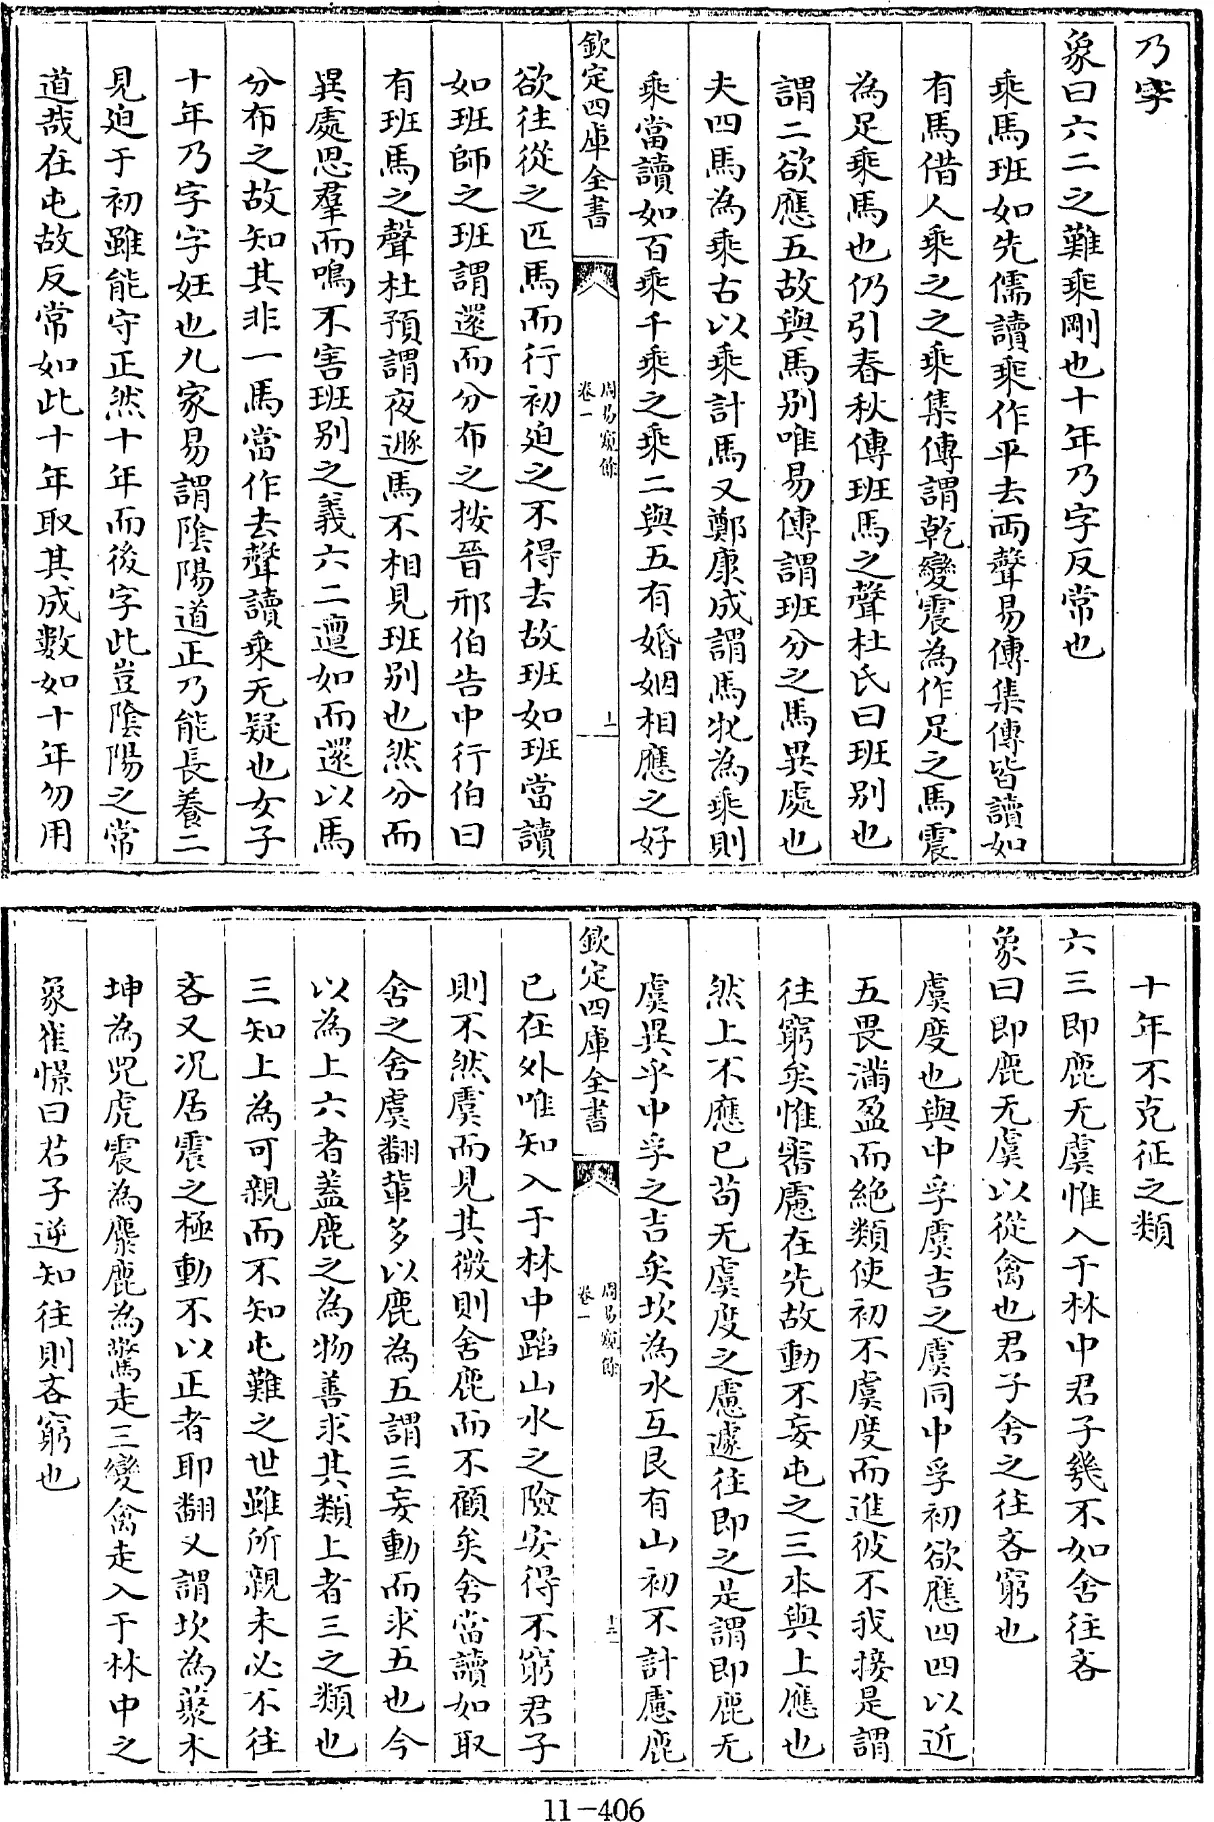 乃字
象曰六二之難乘剛也十年乃字反常也
乘馬班如先儒讀乘作平去兩聲易傳集傳皆讀如
有馬借人乘之之乘集傳謂乾變震為作足之馬震
為足乘馬也仍引春秋傳班馬之聲杜氏曰班别也
謂二欲應五故與馬别唯易傳謂班分之馬異處也
夫四馬為乘古以乘計馬又鄭康成謂馬牝為乘則
乘當讀如百乘千乘之乘二與五有婚姻相應之好
欽定四庫全書
周易窺餘
卷一
十二
欲往從之匹馬而行初廹之不得去故班如班當讀
如班師之班謂還而分布之按晉邢伯告中行伯曰
有班馬之聲杜預謂夜遯馬不相見班别也然分而
異處思羣而鳴不害班别之義六二邅如而還以馬
分布之故知其非一馬當作去聲讀乘无疑也女子
十年乃字字妊也九家易謂陰陽道正乃能長養二
見廹于初雖能守正然十年而後字此豈陰陽之常
道哉在屯故反常如此十年取其成數如十年勿用
十年不克征之類
六三即鹿无虞惟入于林中君子幾不如舍往吝
象曰即鹿无虞以從禽也君子舍之往吝窮也
虞度也與中孚虞吉之虞同中孚初欲應四四以近
五畏滿盈而絶類使初不虞度而進彼不我接是謂
往窮矣惟審慮在先故動不妄屯之三本與上應也
然上不應已茍无虞度之慮遽往即之是謂即鹿无
虞異乎中孚之吉矣坎為水互艮有山初不計慮鹿
欽定四庫全書
周易窺餘
卷一
十三
已在外唯知入于林中蹈山水之險安得不窮君子
則不然虞而見其微則舍鹿而不顧矣舍當讀如取
舍之舍虞翻輩多以鹿為五謂三妄動而求五也今
以為上六者蓋鹿之為物善求其類上者三之類也
三知上為可親而不知屯難之世雖所親未必不往
吝又况居震之極動不以正者耶翻又謂坎為藂木
坤為兕虎震為麋鹿為驚走三變禽走入于林中之
象崔憬曰君子逆知往則吝窮也
11-406